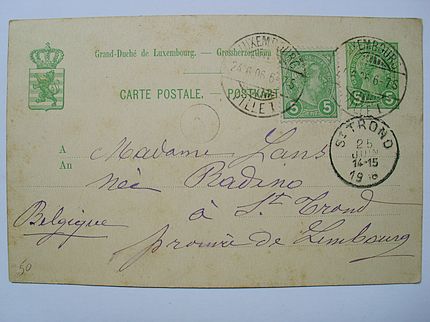 Grand-Duché de Luxembourg. – Grossherzogthum
CARTE POSTALE. POSTKART
LUXEMBOURG
VILLE
5 5
5 5
ST TROND
25
JUIN
14-15
19
A
An
Madame Lans
née Radino
à St Trond
Belgique
province de Limbourg
50